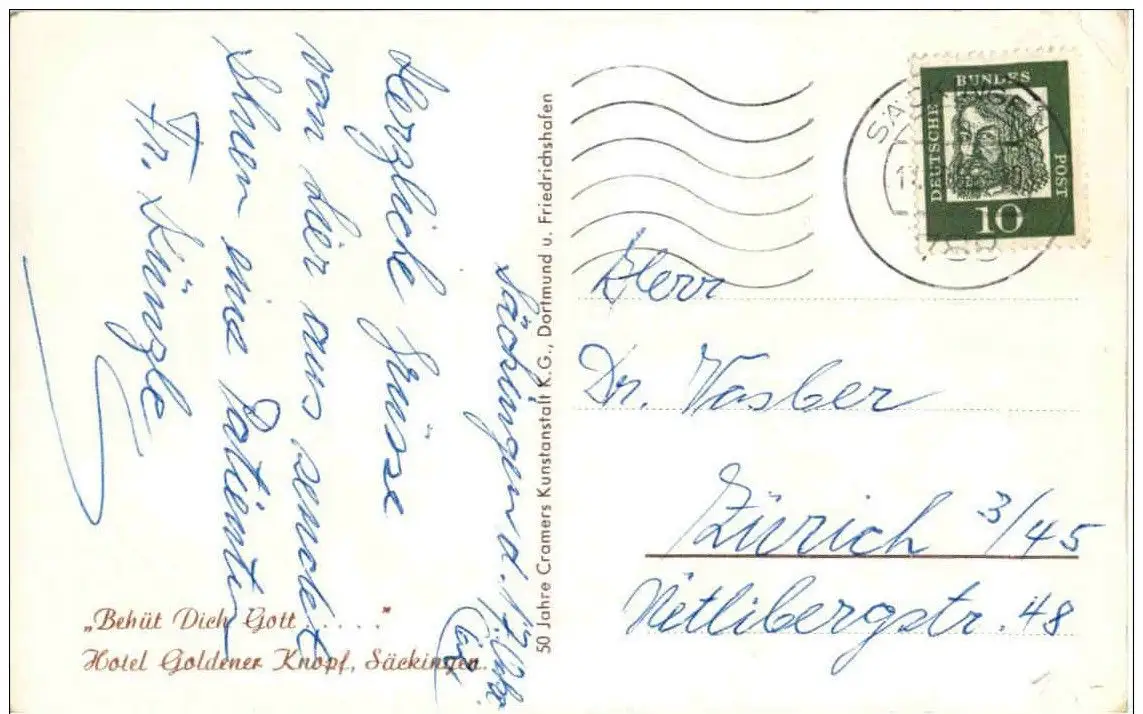 Säckingen d.
Herzliche Grüsse
von hier aus sendet
Ihnen eine Patientin
Fr. Künzle
„Behüt Dich Gott . . . . . ."
Hotel Goldener Knopf, Säckingen.
50 Jahre Cramers Kunstanstalt K.G., Dortmund u. Friedrichshafen
SÄCKINGEN
DEUTSCHE
BUNDES
POST
10
Herr
Dr. Vasber
Zürich 3/45
Uetlibergstr. 48